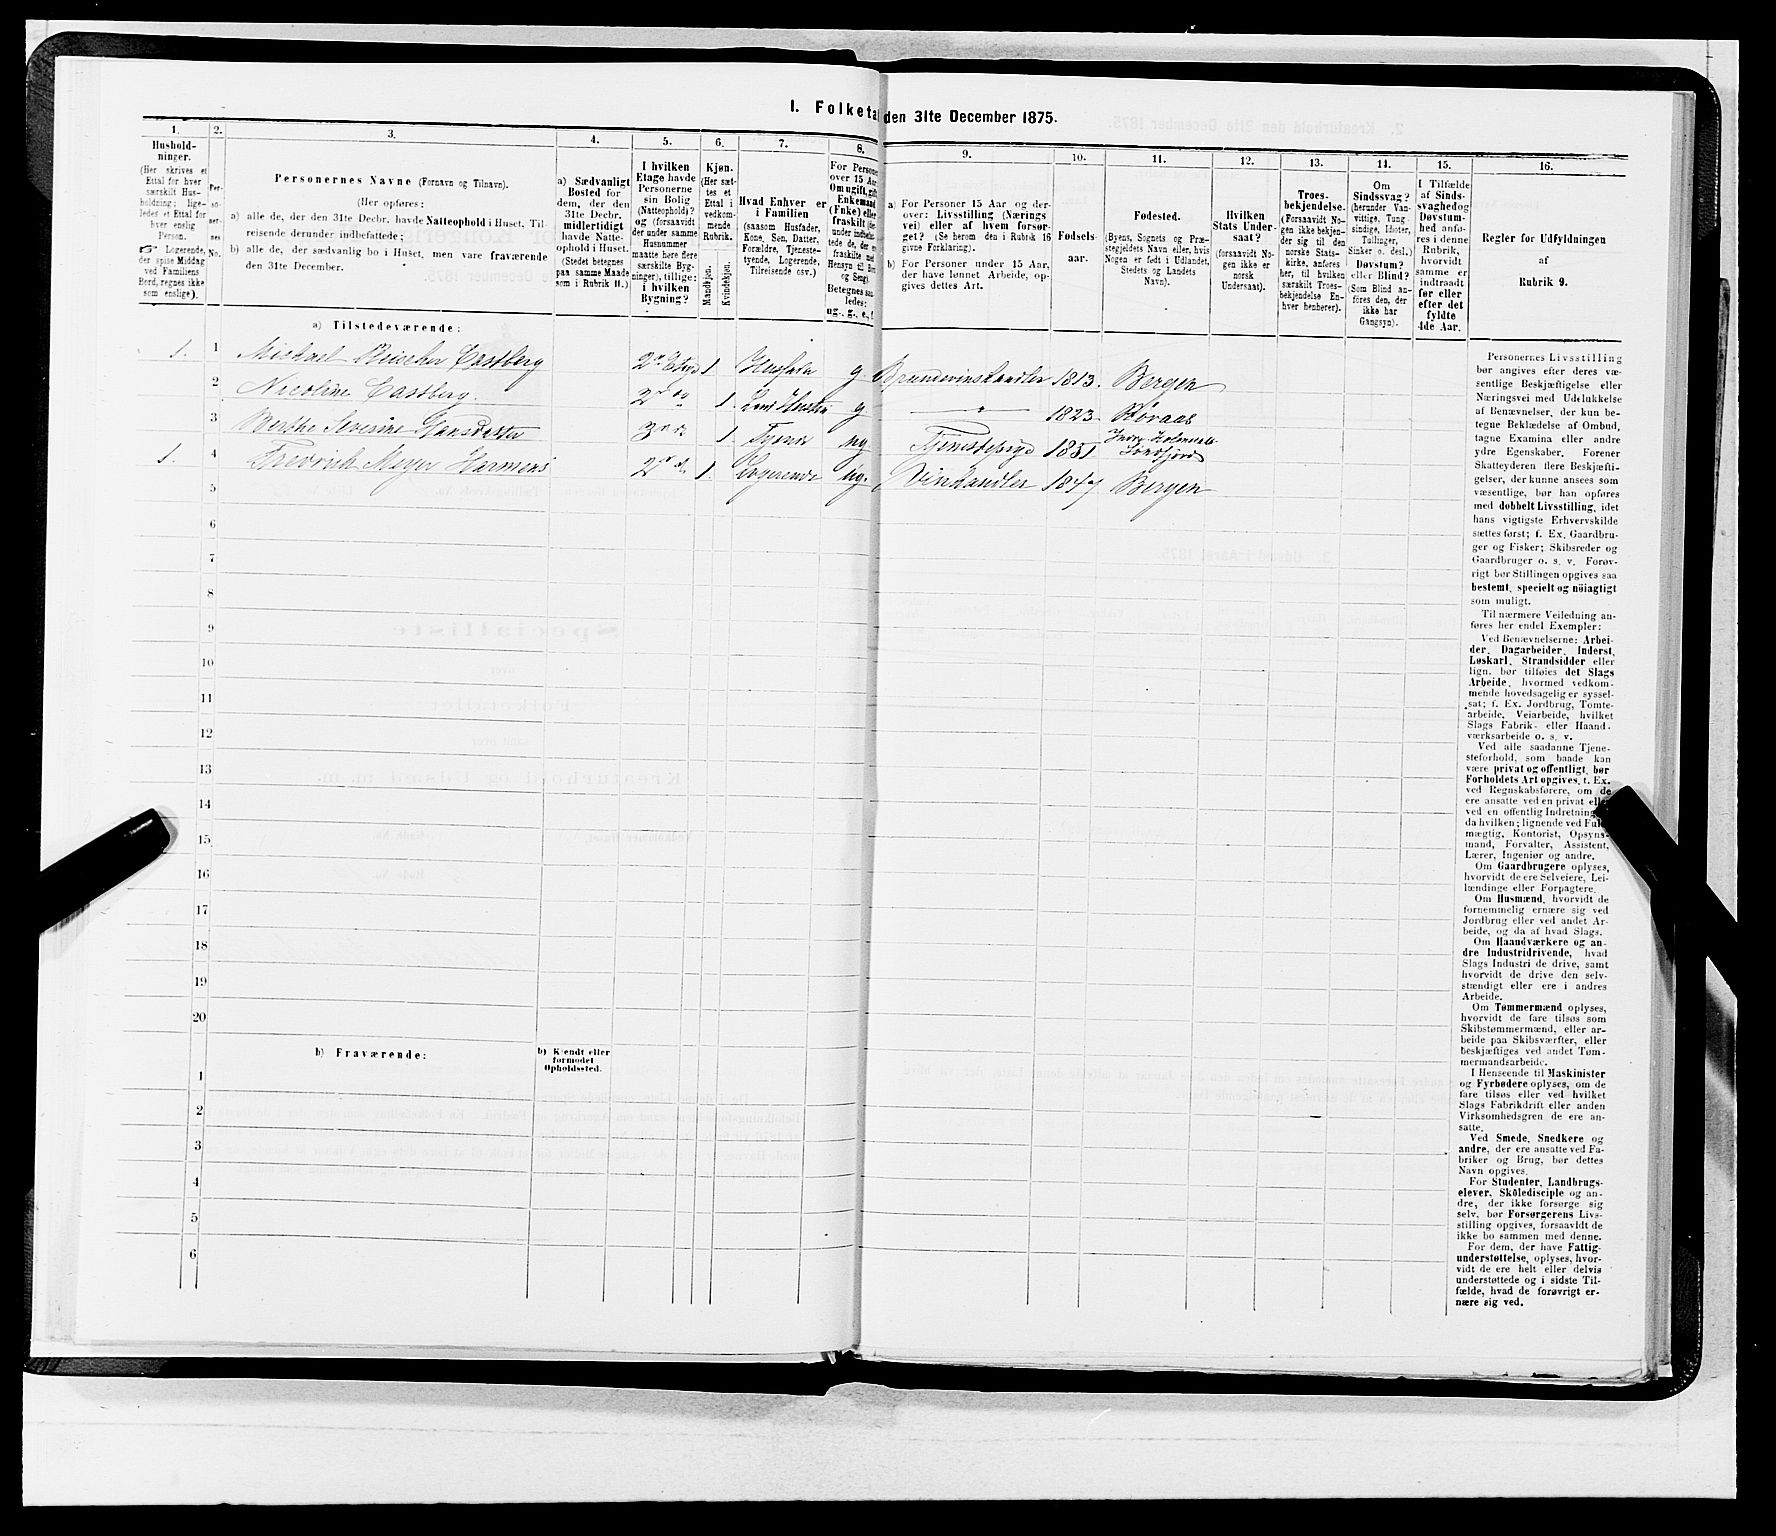 I. Folketal den 31te December 1875.
1.
2.
3.
4.
5.
6.
7.
8.
9.
10.
11.
12.
13.
14.
15.
16.
Hushold-
ninger.
(Her skrives et
Ettal for hver
særskilt Hus-
holdning; lige-
ledes et Ettal for
hver enslig
Person.
☞ Logerende,
der spise Middag
ved Familiens
Bord, regnes ikke
som enslige).
Per-
so-
ner-
nes
No.
Personernes Navne (Fornavn og Tilnavn).
(Her opføres:
a) alle de, der den 31te Decbr. havde Natteophold i Huset, Til-
reisende derunder indbefattede;
b) alle de, der sædvanlig bo i Huset, men vare fraværende
den 31te December.
a) Sædvanligt
Bosted for
dem, der den
31te Decbr.
midlertidigt
havde Natte-
ophold i Huset.
(Stedet betegnes
paa samme Maade
som i Rubrik 11.)
I hvilken
Etage havde
Personerne
sin Bolig
(Natteophold)?
og (forsaavidt
der under samme
Husnummer
maatte høre flere
særskilte Byg-
ninger), tillige:
i hvilken
Bygning?
Kjøn.
(Her sæt-
tes et
Ettal i
vedkom-
mende
Rubrik.
Mandkjøn.
Kvindekjøn.
Hvad Enhver er
i Familien
(saasom Husfader,
Kone, Søn, Datter,
Forældre, Tjeneste-
tyende, Logerende,
Tilreisende osv.)
For Personer
over 15 Aar
Om ugift, gift,
Enkemand
(Enke) eller
fraskilt
Betegnes saa-
ledes:
ug., g., e., f.
a) For Personer 15 Aar og der-
over: Livsstilling (Nærings
vei) eller af hvem forsør-
get? (Se herom den i Rubrik 16
givne Forklaring).
b) For Personer under 15 Aar,
der have lønnet Arbeide, op-
gives dettes Art.
Fødsels-
aar.
Fødested.
(Byens, Sognets og Præ-
stegjeldets Navn eller, hvis
Nogen er født i Udlandet,
Stedets og Landets
Navn).
Hvilken
Stats Under-
saat?
(forsaavidt No-
gen ikke er
norsk
Undersaat).
Troes-
bekjendelse.
(Forsaavidt No-
gen ikke bekjen-
der sig til den
norske Stats-
kirke, anføres
her, til hvilken
særskilt Troes-
bekjendelse En-
hver henhører).
Om
Sindssvag?
(herunder Van-
vittige, Tung-
sindige, Idioter,
Tullinger,
Sinker o. desl.)
Døvstum?
eller Blind?
(Som Blind an-
føres den, der
ikke har
Gangsyn).
I Tilfælde
af Sinds-
svaghed og
Døvstum-
hed anfø-
res i denne
Rubrik,
hvorvidt
samme er
indtraadt
før eller
efter det
fyldte
4de Aar.
Regler for Udfyldningen
af
Rubrik 9.
a) Tilstedeværende:
1. 1 Castberg 1. g. Brændevinshandler 1813. Bergen
2 Nicoline Castberg. 1. g " 1823. Roraas
3 Berthe Severine 1. ug 1851
1. 4 Fredrick Meyer Harmens 1. Logerende ug. Vinhandler 1847 Bergen
5
6
7
8
9
10
11
12
13
14
15
16
17
18
19
20
b) Fraværende:
b) Kjendt eller
formodet
Opholdssted.
1
2
3
4
5
6
Personernes Livsstilling
bør angives efter deres væ-
sentlige Beskjæftigelse eller
Næringsvei med Udelukkelse
af Benævnelser, der kun be-
tegne Beklædelse af Ombud,
tagne Examina eller andre
ydre Egenskaber. Forener
Skatteyderen flere Beskjæfti-
gelser, der kunne ansees som
væsentlige, bør han opføres
med dobbelt Livsstilling, idet
hans vigtigste Erhvervskilde
sættes først; f. Ex. Gaardbru-
ger og Fisker; Skibsreder og
Gaardbruger o. s. v. Forøv-
rigt bør Stillingen opgives saa
bestemt, specielt og nöiagtigt
som muligt.
Til nærmere Veiledning an-
føres her endel Exempler:
Ved Benævnelserne: Arbei-
der, Dagarbeider, Inderst,
Løskarl, Strandsidder eller
lign. bør tilføies det Slags
Arbeide, hvormed vedkom-
mende hovedsagelig er syssel-
sat; f. Ex. Jordbrug, Tomte-
arbeide, Veiarbeide, hvilket
Slags Fabrik- eller Haand-
værksarbeide o. s. v.
Ved alle saadanne Tjene-
steforhold, som baade kan
være privat og offentligt, bør
Forholdets Art opgives, f. Ex.
ved Regnskabsførere, om de
ere ansatte ved en privat eller
ved en offentlig Indretning og
da hvilken; lignende ved Fuld-
mægtig, Kontorist, Opsyns-
mand, Forvalter, Assistent,
Lærer, Ingeniør og andre.
Om Gaardbrugere oplyses,
hvorvidt de ere Selveiere, Lei-
lændinge eller Forpagtere.
Om Husmænd, hvorvidt de
fornemmelig ernære sig ved
Jordbrug eller ved andet Ar-
beide, og da af hvad Slags.
Om Haandværkere og an-
dre Industridrivende, hvad
Slags Industri de drive, samt
hvorvidt de drive den selv-
stændigt eller ere i andres
Arbeide.
Om Tømmermænd oplyses,
hvorvidt de fare tilsøs som
Skibstømmermænd, eller ar-
beide paa Skibsværfter, eller
beskjæftiges ved andet Tøm-
mermandsarbeide.
I Henseende til Maskinister
og Fyrbødere oplyses, om de
fare tilsøs eller ved hvilket
Slags Fabrikdrift eller anden
Virksomhedsgren de ere an-
satte.
Ved Smede, Snedkere og
andre, der ere ansatte ved Fa-
briker og Brug, bør dettes
Navn opgives.
For Studenter, Landbrugs-
elever, Skoledisciple og an-
dre, der ikke forsørge sig
selv, bør Forsørgerens Livs-
stilling opgives, forsaavidt de
ikke bo sammen med denne.
For dem, der have Fattig-
understøttelse, oplyses, hvor-
vidt de ere helt eller delvis
understøttede og i sidste Til-
fælde, hvad de forøvrigt er-
nære sig ved.